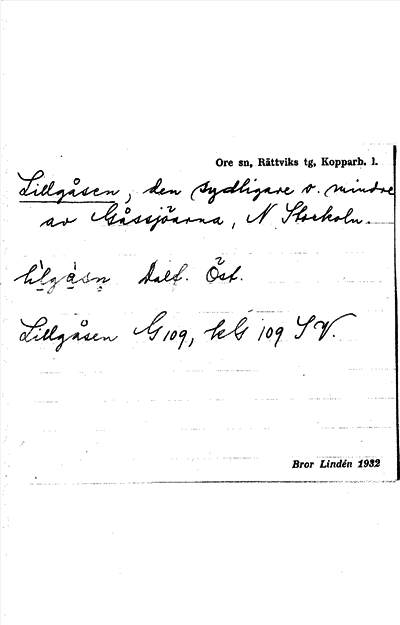 Ore sn, Rättviks tg, Kopparb. l.
Lillgåsen, den sydligare o. mindre
av Gåssjöarna, N Storholn.
Dalf. Öst.
Lillgåsen G 109, kG 109 SV.
Bror Lindén 1932